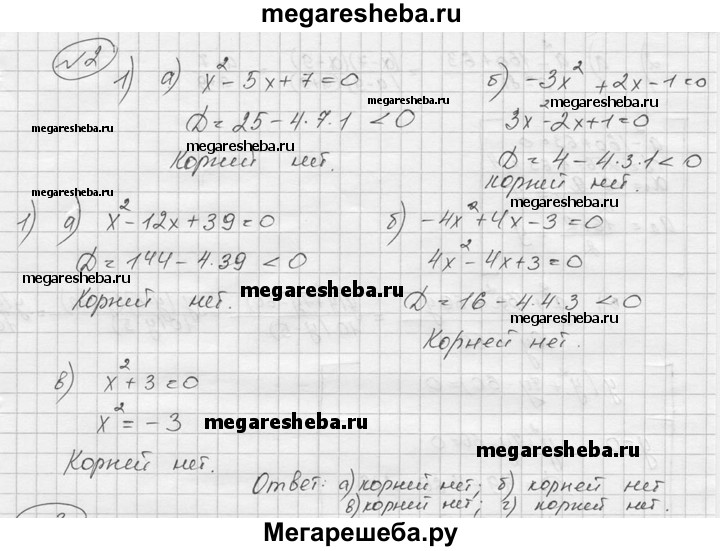 megaresheba.ru
№2
1) а) x² - 5x + 7 = 0 б) -3x² + 2x - 1 = 0
megaresheba.ru megaresheba.ru
D = 25 - 4·7·1 < 0 3x² - 2x + 1 = 0
megaresheba.ru megaresheba.ru
Корней нет. D = 4 - 4·3·1 < 0
корней нет.
megaresheba.ru megaresheba.ru
1) а) x² - 12x + 39 = 0 б) -4x² + 4x - 3 = 0
D = 144 - 4·39 < 0 4x² - 4x + 3 = 0
megaresheba.ru megaresheba.ru
Корней нет. D = 16 - 4·4·3 < 0
megaresheba.ru
Корней нет.
в) x² + 3 = 0
x² = -3
megaresheba.ru megaresheba.ru
Корней нет.
Ответ: а) корней нет; б) корней нет
в) корней нет; г) корней нет.
Мегарешеба.ру